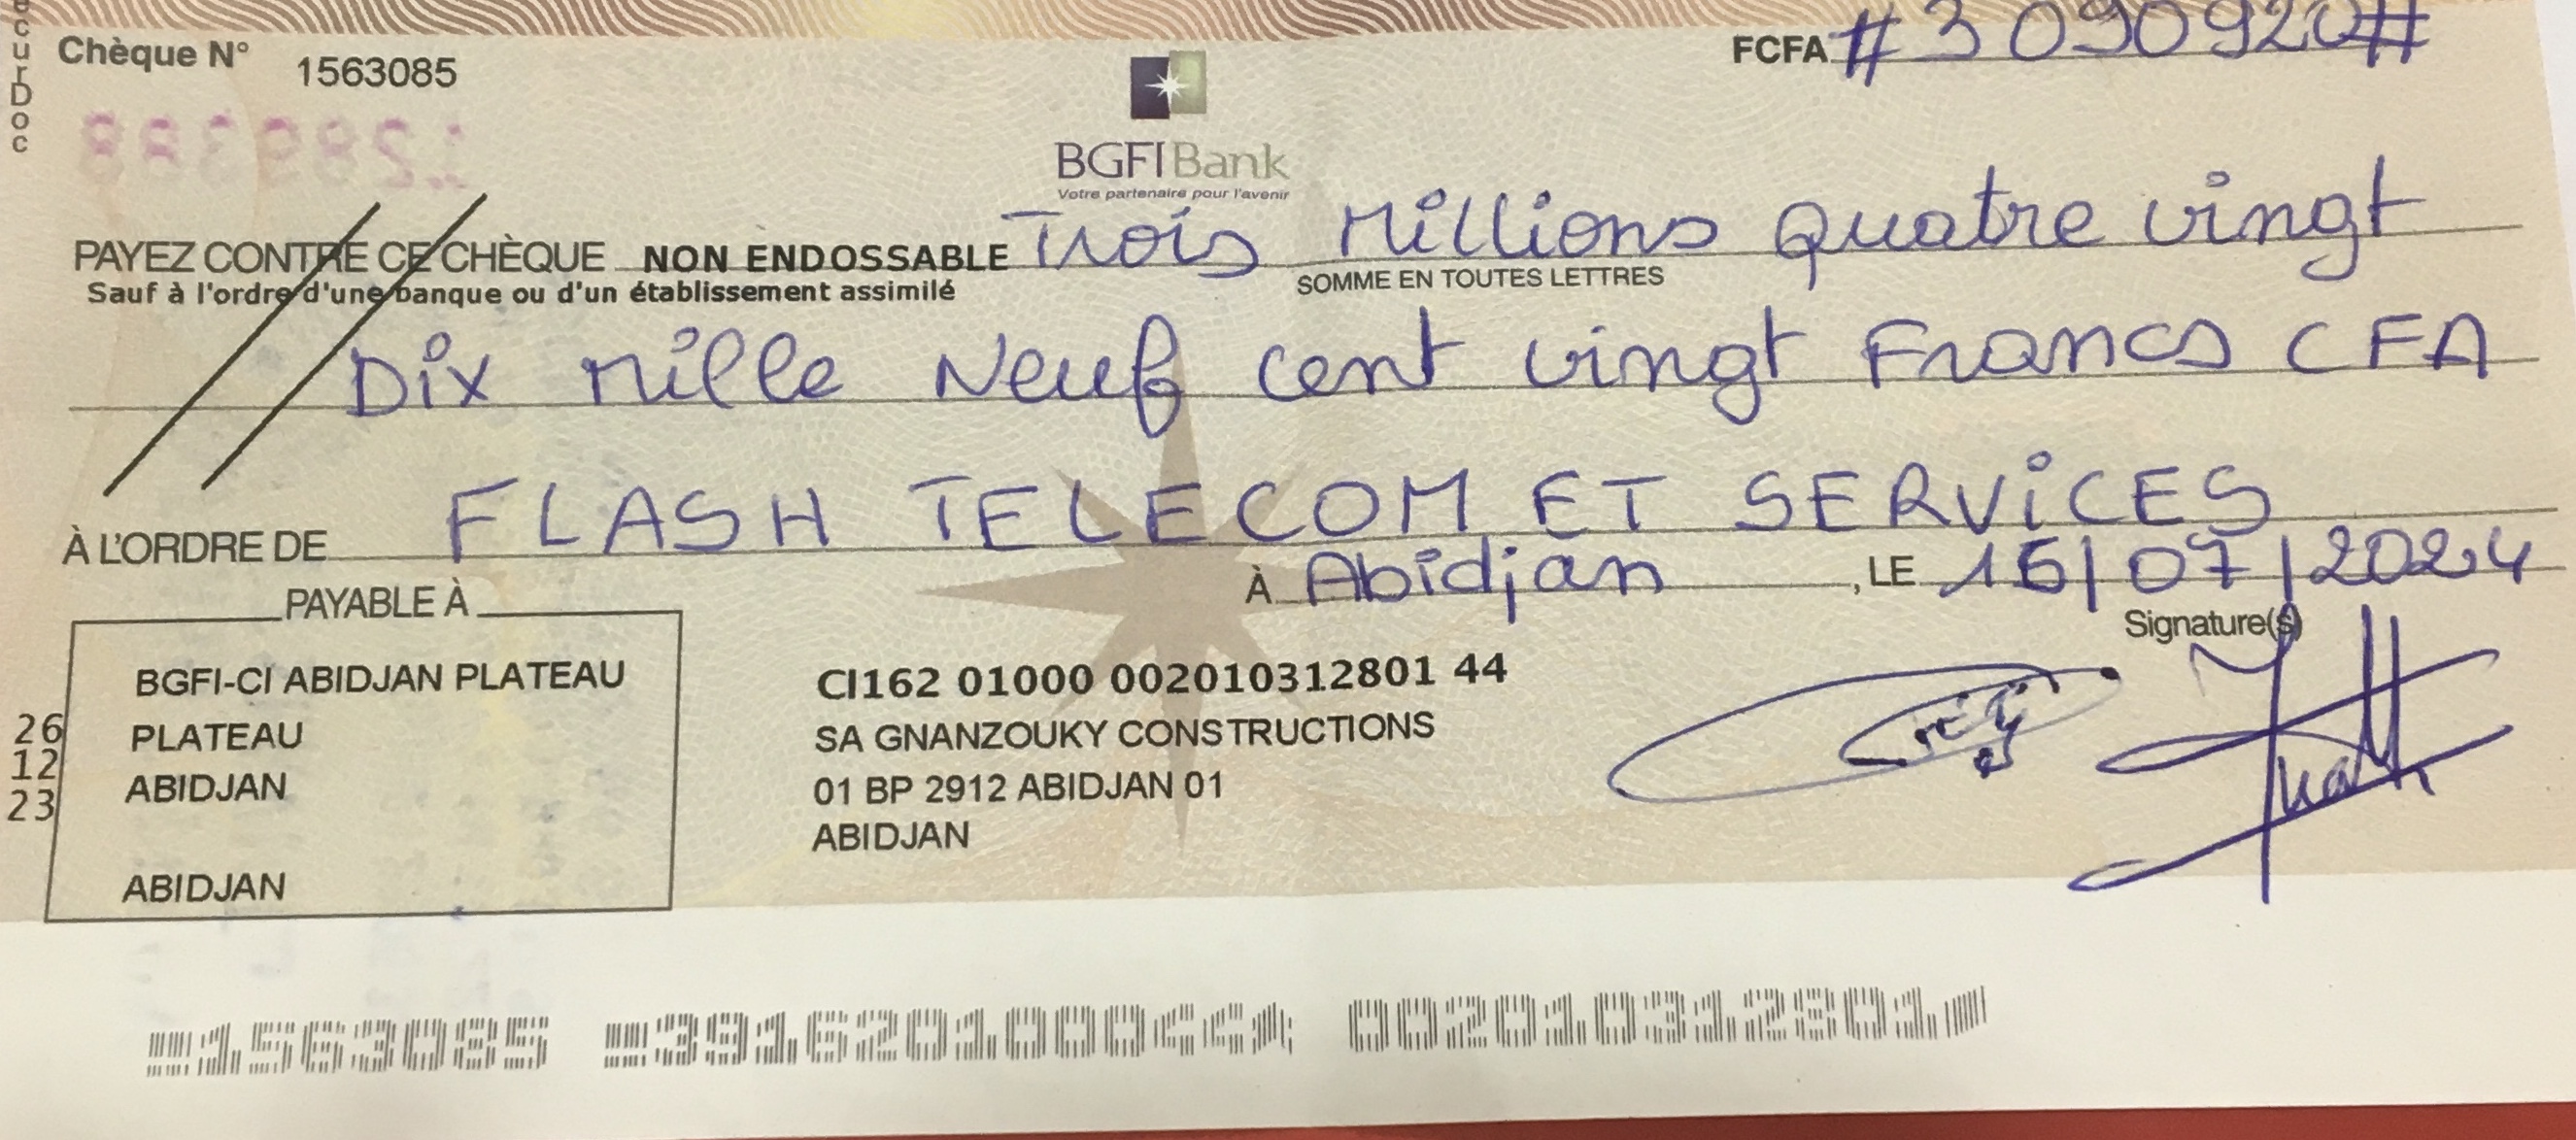 ecurDoc
Chèque N° 1563085
FCFA # 3 090 920 #
1289388
BGFIBank
Votre partenaire pour l'avenir
PAYEZ CONTRE CE CHÈQUE NON ENDOSSABLE Trois Millions Quatre vingt
Sauf à l'ordre d'une banque ou d'un établissement assimilé
SOMME EN TOUTES LETTRES
Dix Mille Neuf cent vingt Francs CFA
À L'ORDRE DE FLASH TELECOM ET SERVICES
À Abidjan, LE 16/07/2024
PAYABLE À
Signature(s)
BGFI-CI ABIDJAN PLATEAU
PLATEAU
ABIDJAN
ABIDJAN
26
12
23
CI162 01000 002010312801 44
SA GNANZOUKY CONSTRUCTIONS
01 BP 2912 ABIDJAN 01
ABIDJAN
1563085 391620100044 002010312801